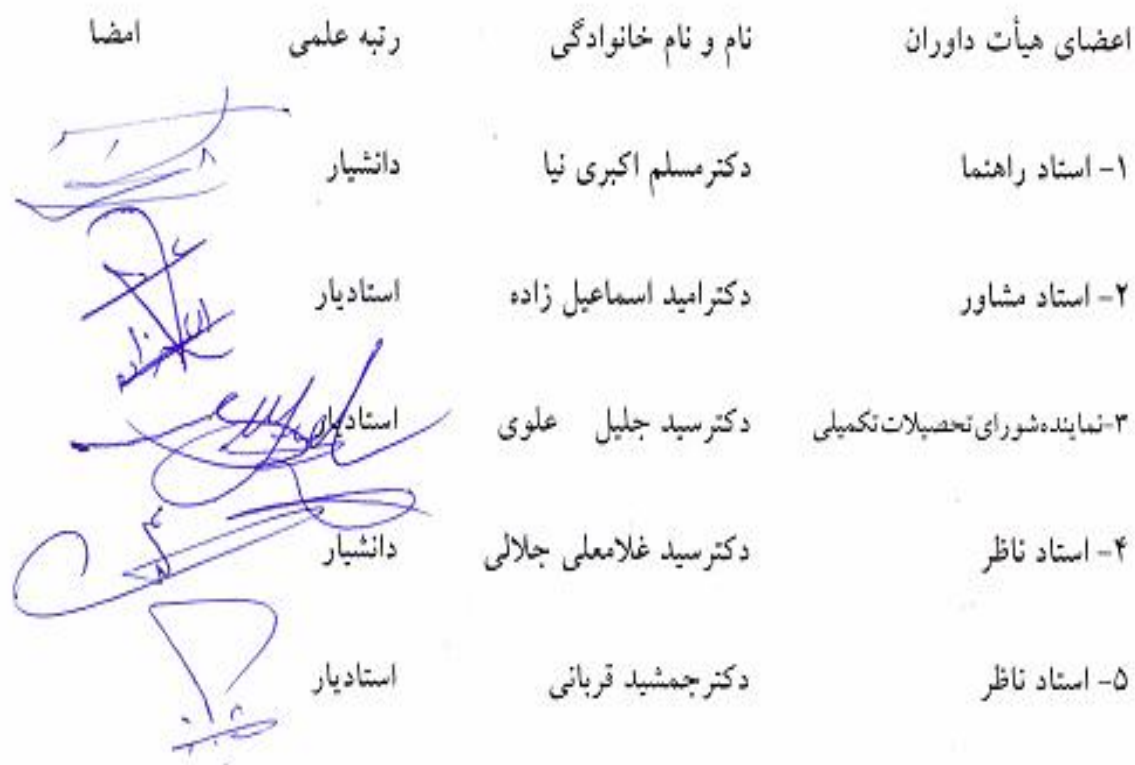 اعضای هیأت داوران نام و نام خانوادگی رتبه علمی امضا
۱- استاد راهنما دکترمسلم اکبری نیا دانشیار
۲- استاد مشاور دکترامید اسماعیل زاده استادیار
۳-نماینده‌شورای‌تحصیلات‌تکمیلی دکترسید جلیل علوی استادیار
۴- استاد ناظر دکترسید غلامعلی جلالی دانشیار
۵- استاد ناظر دکترجمشید قربانی استادیار